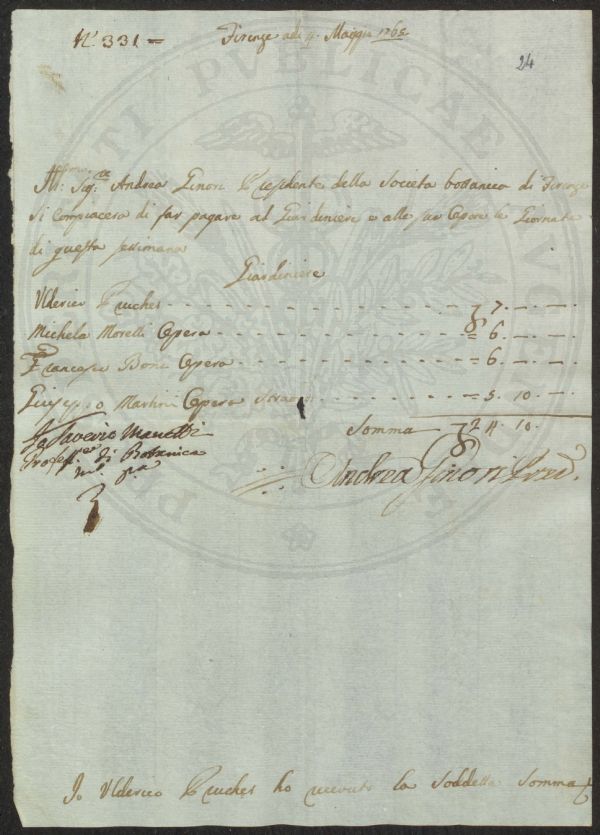 N° 331 =
Firenze adi 4 Maggio 1765
24
Ill:mo Sig:re Andrea Ginori Presidente della Societa bottanica di Firenze
si compiacera di far pagare al Giardiniere e alle sue Opere le Giornate
di questa settimana
Giardiniere
Ulderico Pruches - - - - - 7. — —
Michele Morelli Opera - - - - - = 6. — —
Francesco Boni Opera - - - - - = 6. — —
Giuseppe Martini Opera - - - - - = 5. 10. —
Somma 24. 10. —
Saverio Manetti
Profess:re di Botanica
m:o p:a
Andrea Ginori Pres.
Io Ulderico Pruches ho ricevuto la soddetta somma
PUBLICAE